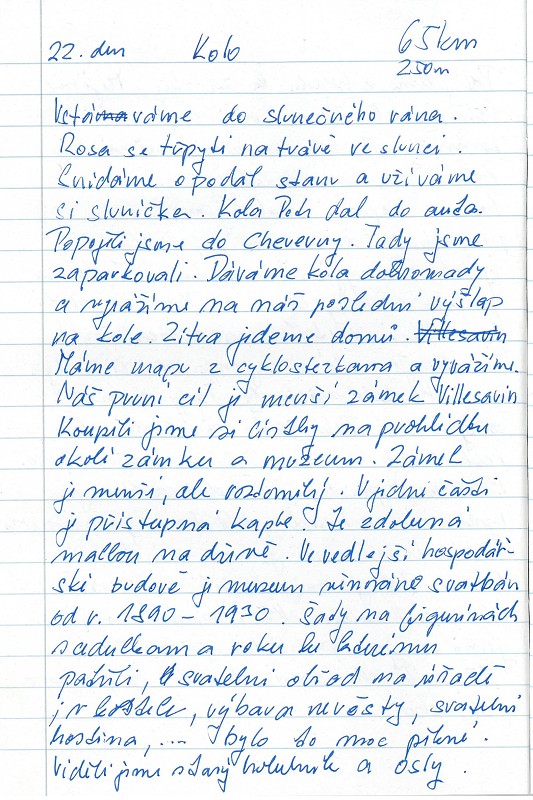 22. den Kolo 65km
250m
Vstáváme do slunečného rána.
Rosa se třpytí na trávě ve slunci.
Snídáme opodál stanu a užíváme
si sluníčka. Kola Petr dal do auta.
Popojeli jsme do Cheverny. Tady jsme
zaparkovali. Dáváme kola dohromady
a vyrážíme na náš poslední výšlap
na kole. Zítra jedeme domů. Villesavin
Máme mapu z cyklostezkama a vyrážíme.
Náš první cíl je menší zámek Villesavin
Koupili jsme si lístky na prohlídku
okolí zámku a muzeum. Zámek
je menší, ale roztomilej. V jedné části
je přístupná kaple. Je zdobená
malbou na dřevě. Ve vedlejší hospodář-
ské budově je muzeum věnováno svatbám
od r. 1890 - 1930. Šaty na figurínách
a roku ke kterému
patřili, svatební obřad na úřadě
i v kostele, výbava nevěsty, svatební
hostina, ... bylo to moc pěkné.
Viděli jsme starý holubník a osly.